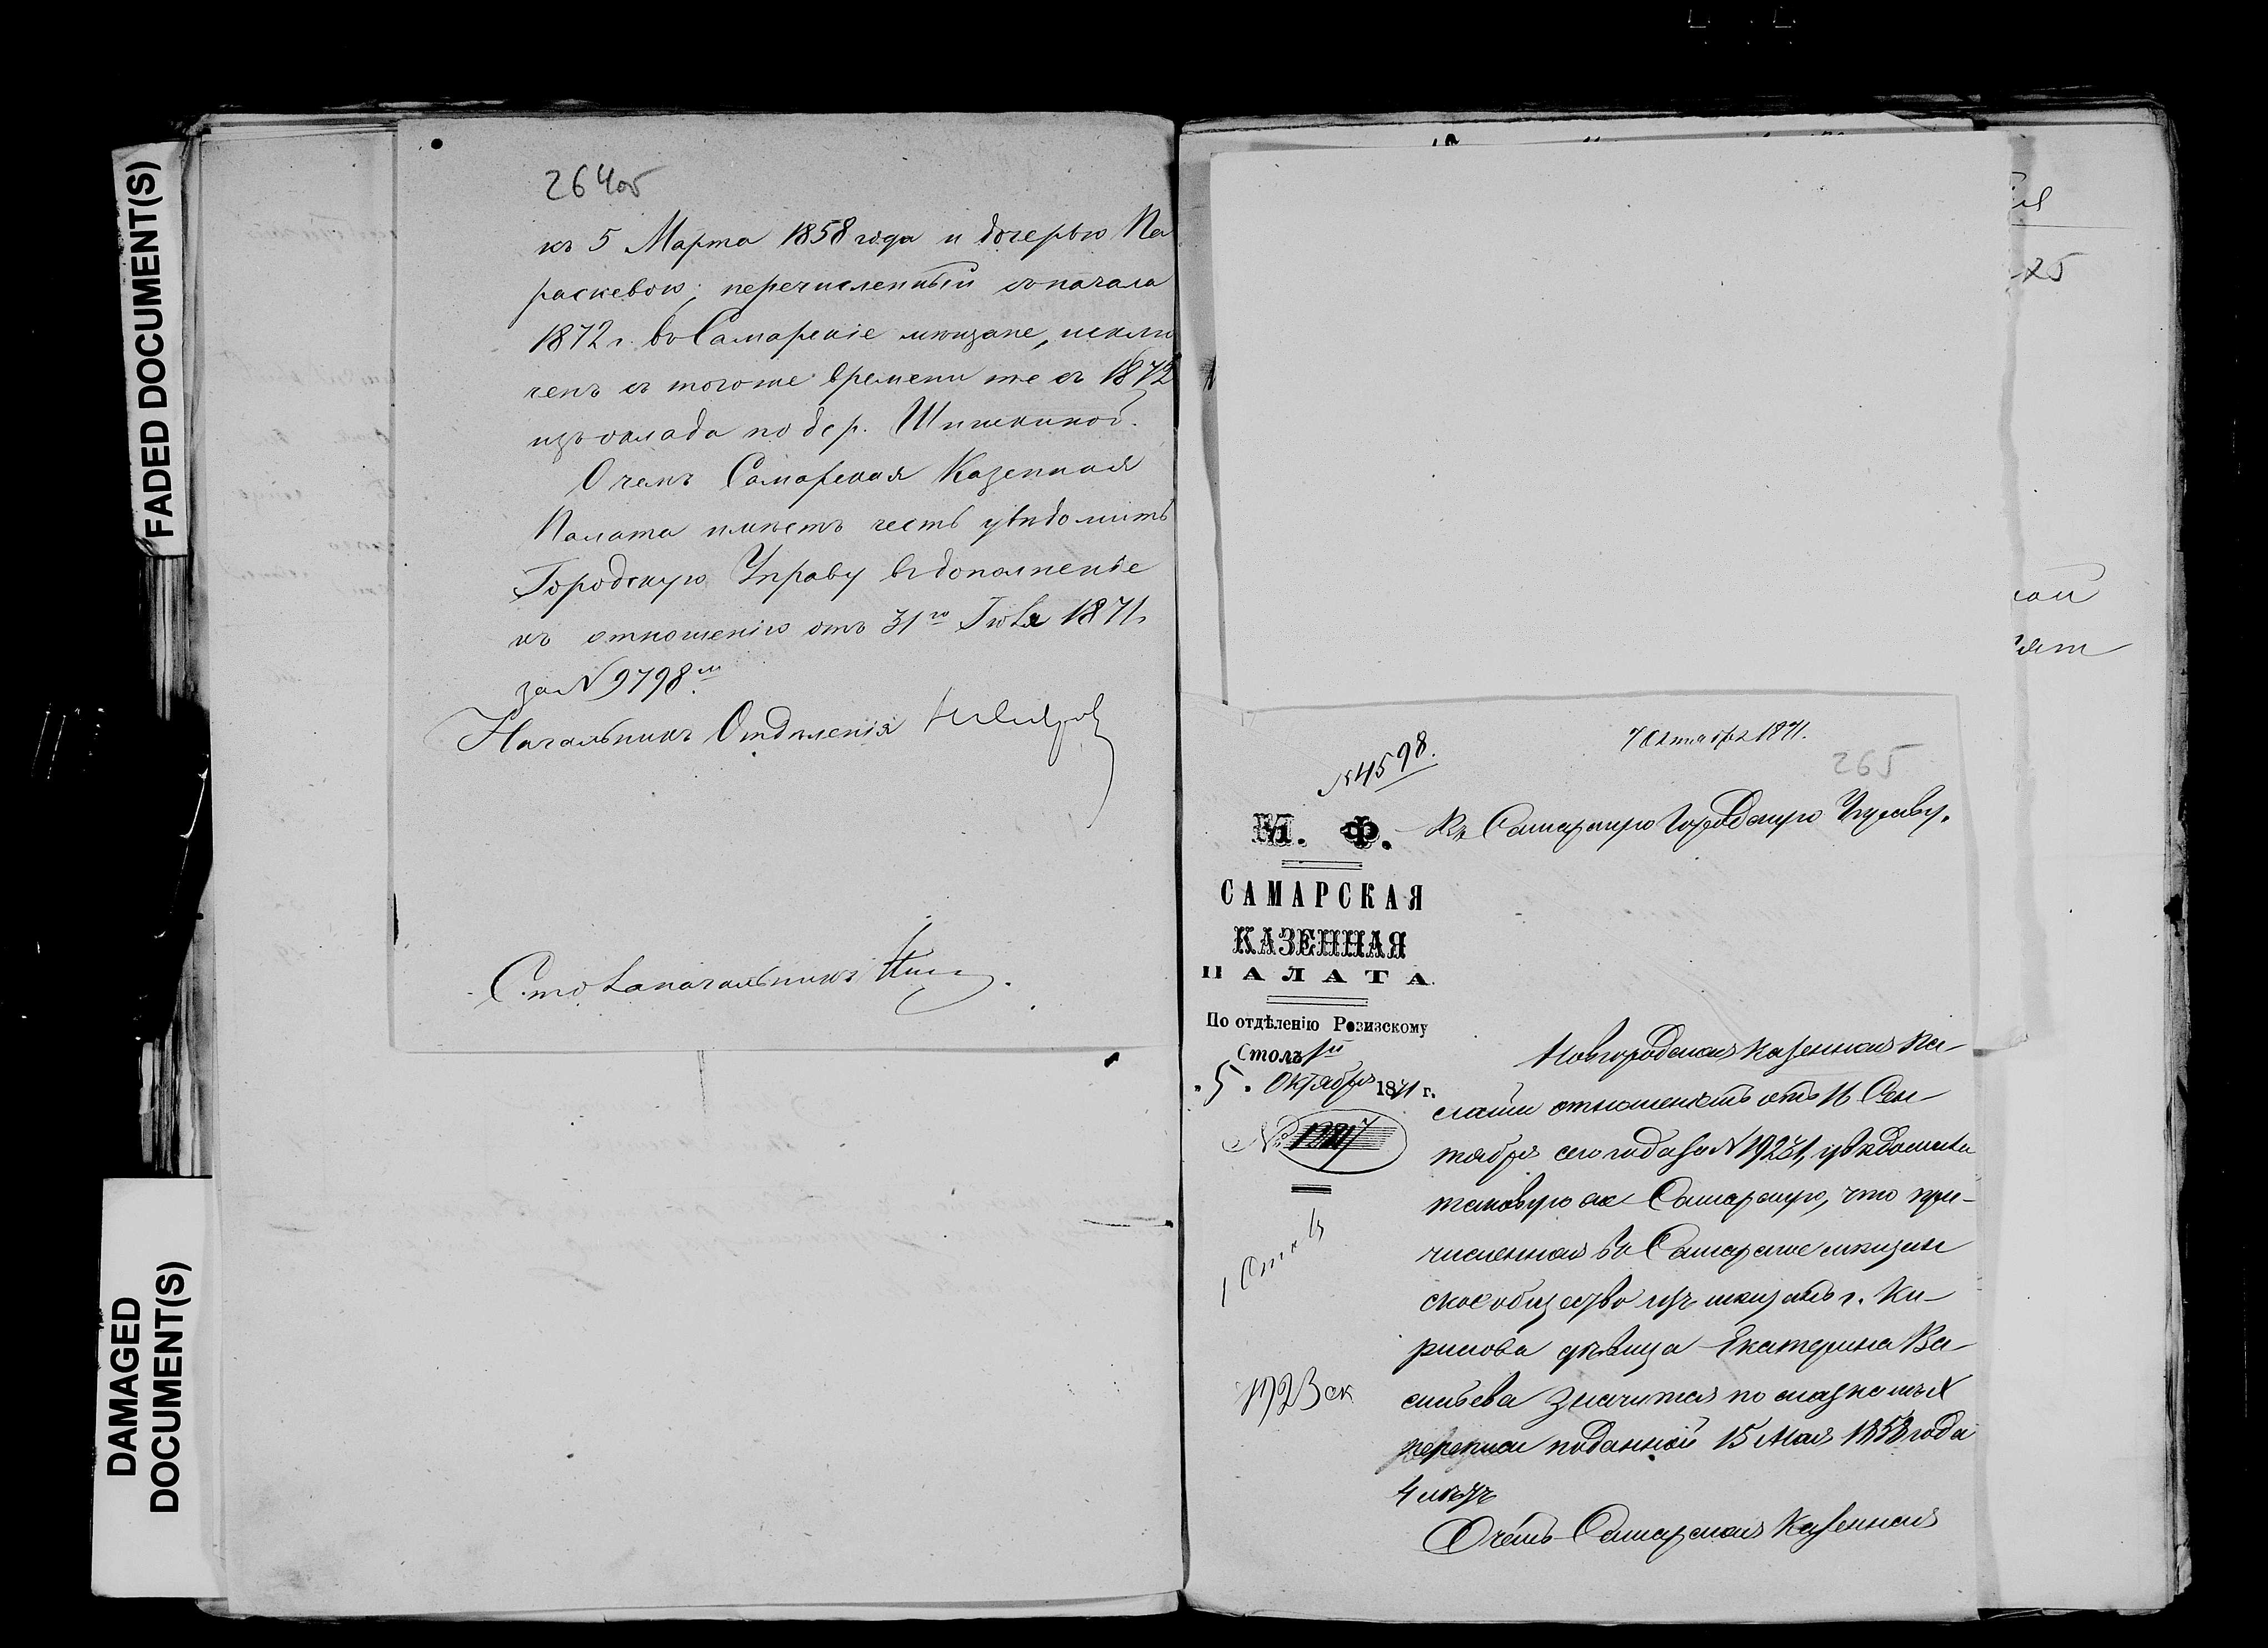 FADED DOCUMENT(S)
DAMAGED
DOCUMENT(S)
264об
къ 5 Марта 1858 года и дочерью Па
раскевою; перечисленный съ начала
1872 г. въ Самарскіе мѣщане, исклю
ченъ съ того же времени т е съ 1872
изъ оклада по дер. Шишкиной.
О чемъ Самарская Казенная
Палата имѣетъ честь увѣдомить
Городскую Управу въ дополненіе
къ отношенію отъ 31го Іюля 1871 г.
за N 9798м
Начальникъ Отдѣленія
Столоначальникъ
7 Октября 1871.
№ 4598.
265
М. Ф.
Въ Самарскую Городскую Управу.
САМАРСКАЯ
КАЗЕННАЯ
ПАЛАТА
По отдѣленію Ревизскому
Столъ 1й
„5„ Октября 1871 г.
№
1 Отд
Новгородская Казенная Па-
лата отношеніемъ отъ 16 Сен-
тября сего года за N 19231, увѣдомила
таковую же Самарскую, что при-
численная въ Самарское мѣщан
ское общество изъ мѣщанъ г. Ки-
рилова дѣвица Екатерина Ва-
сильева значится по сказкѣ X
переписи поданной 15 Мая 1858 года
4 мѣсяцъ
О чемъ Самарская Казенная
25